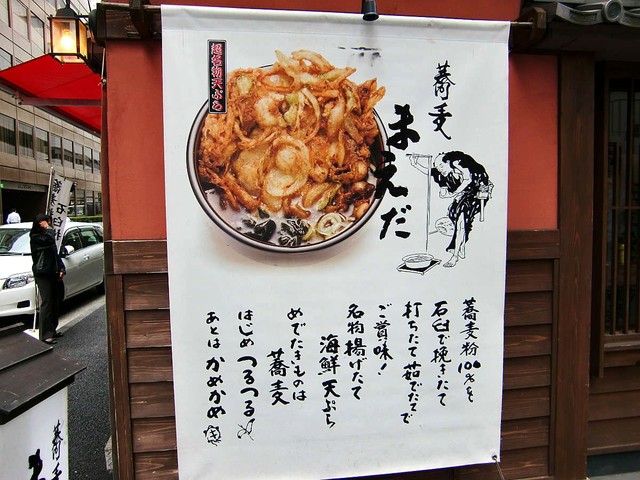 蕎麦
まえだ
超名物天ぷら
蕎麦粉100%を
石臼で挽きたて
打ちたて茹でたてで
ご賞味!
名物揚げたて
海鮮天ぷら
めでたきものは
蕎麦
はじめ つるつる
あとは かめかめ
蕎麦